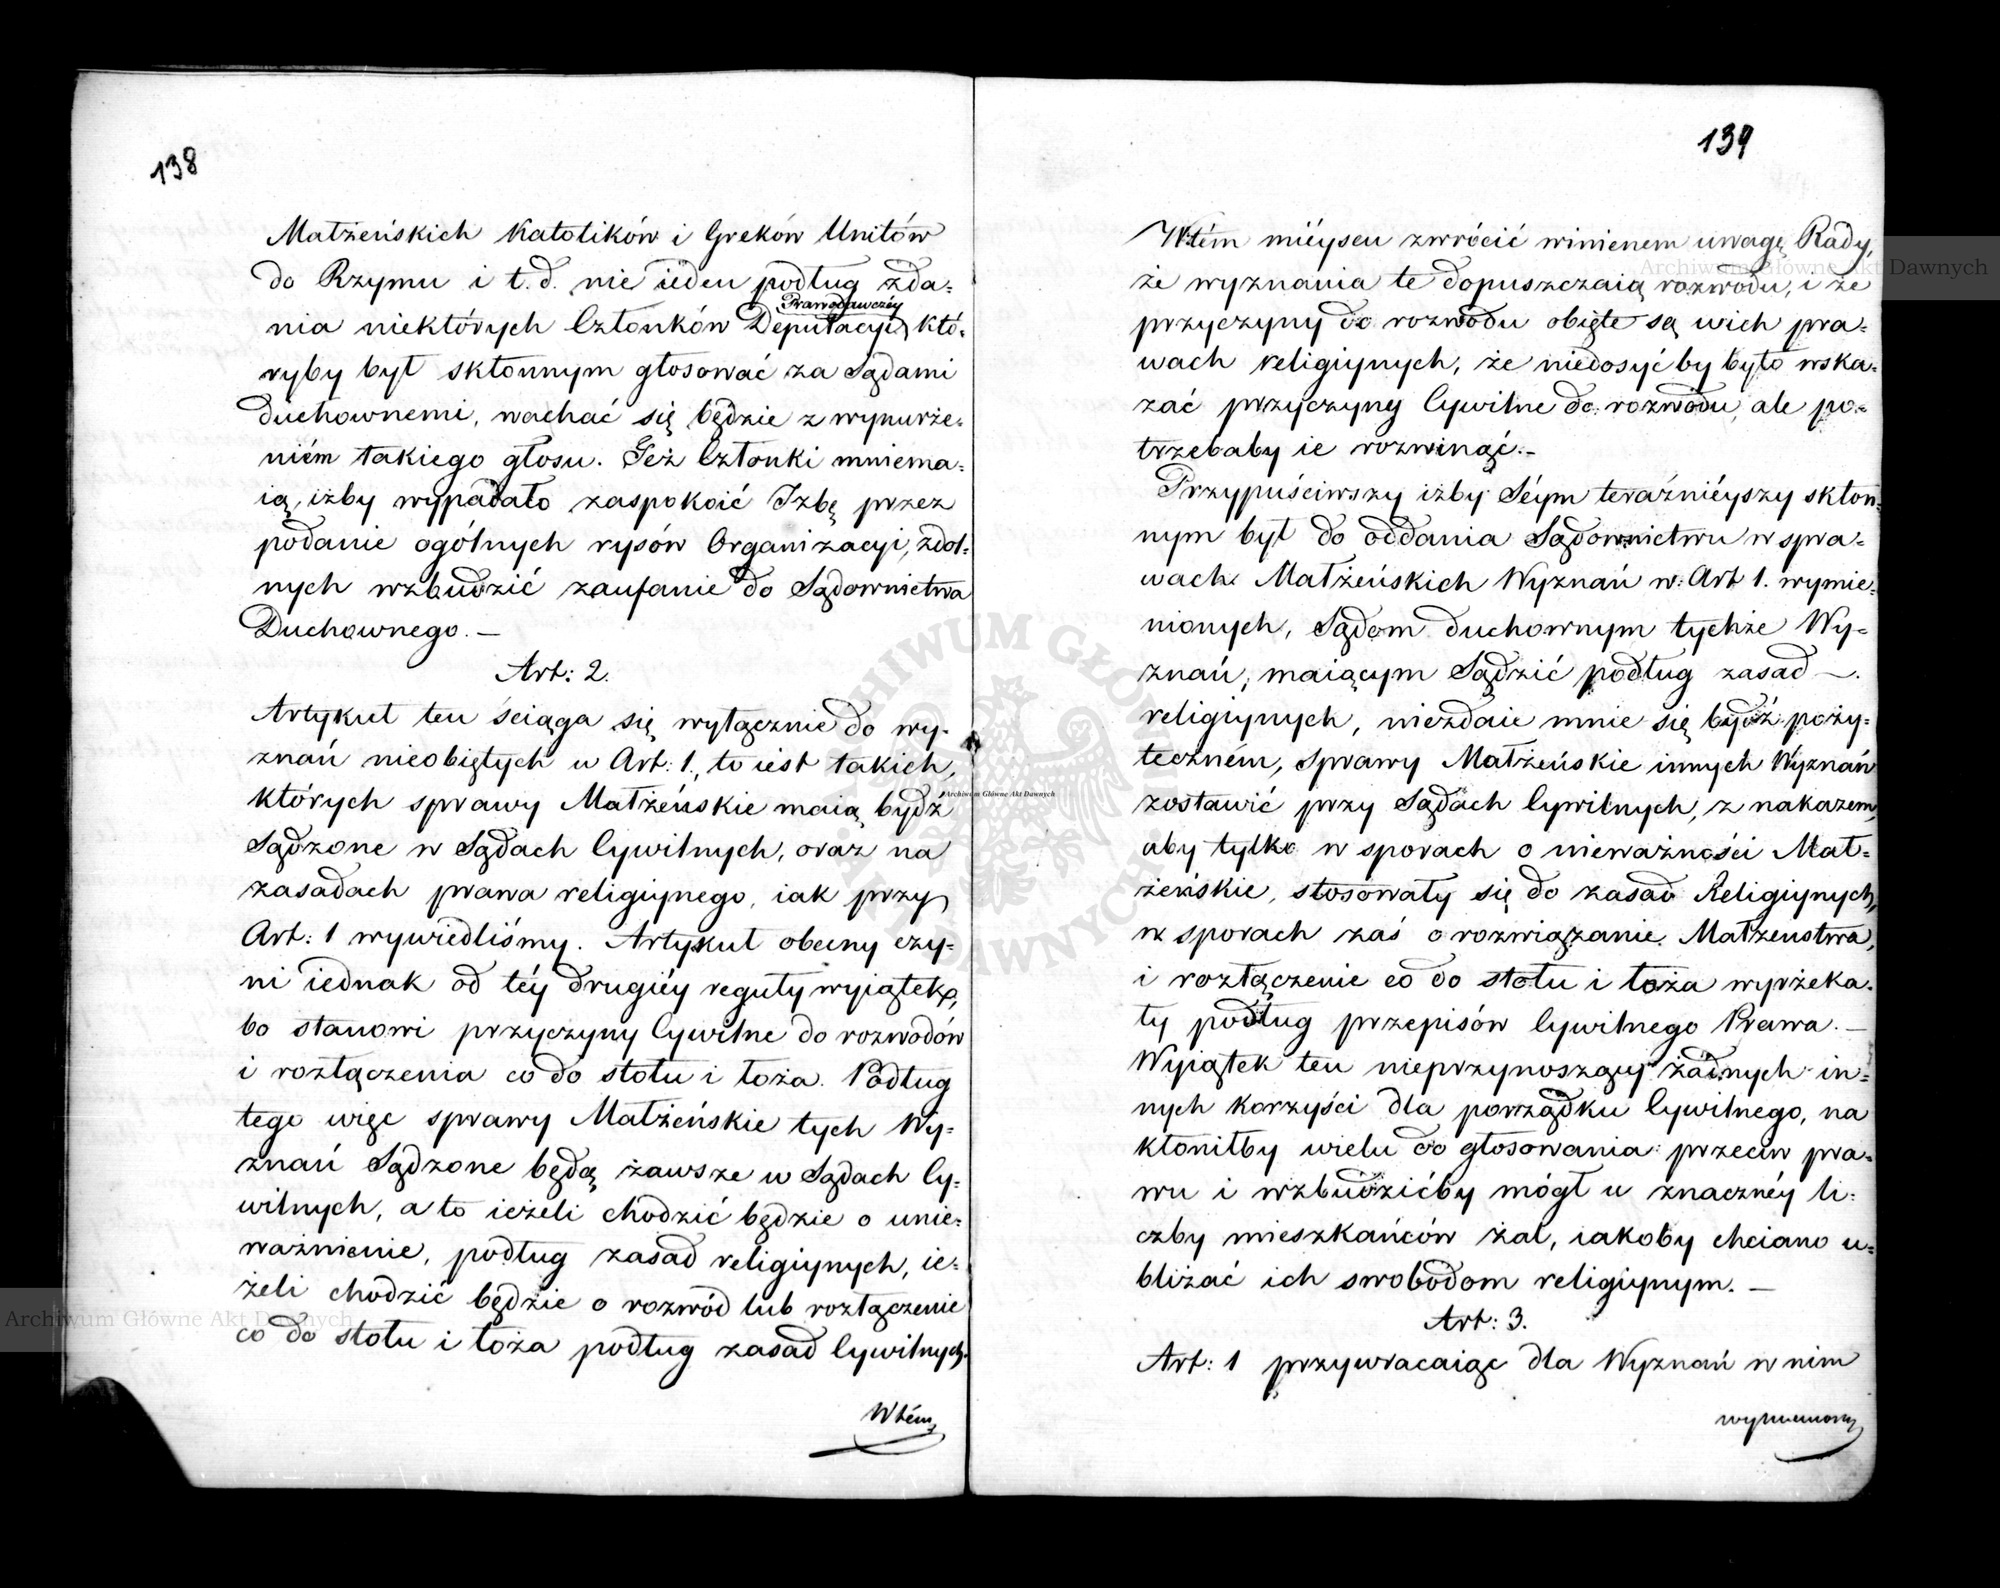 138
Małżeńskich Katolików i Greków Unitów
do Rzymu i t. d. nie ieden podług zda-
Prawodawczéy
nia niektórych Członków Deputacyi, któ-
ryby był skłonnym głosować za Sądami
duchownemi, wachać się będzie z wynurże-
niém takiego głosu. Też Członki mniema-
ią, iżby wypadało zaspokoić Izbę przez
podanie ogólnych rysów Organizacyi, zdol-
nych wzbudzić zaufanie do Sądownictwa
Duchownego. —
Art: 2.
Artykuł ten ściąga się wyłącznie do wy-
znań nieobiętych w Art: 1., to iest takich,
których sprawy Małżeńskie maią bydź
Sądzone w Sądach Cywilnych, oraz na
zasadach prawa religiynego, iak przy
Art: 1 wywiedliśmy. Artykuł obecny czy-
ni iednak od téy drugiéy reguły wyiątek,
bo stanowi przyczyny Cywilne do rozwodów
i rozłączenia co do stołu i łoża. Podług
tego więc sprawy Małżeńskie tych Wy-
znań Sądzone będą żawsze w Sądach Cy-
wilnych, a to ieżeli chodzić będzie o unie-
ważnienie, podług zasad religiynych, ie-
żeli chodzić będzie o rozwód lub rozłączenie
co do stołu i łoża podług zasad Cywilnych.
Wtém
139
Wtém miéyscu zwrócić winienem uwagę Rady,
że wyznania te dopuszczaią rozwodu, i że
przyczyny do rozwodu obięte są wich pra-
wach religiynych, że niedosyć by było wska-
zać przyczyny Cywilne do rozwodu, ale po-
trzebaby ie rozwinąć. -
Przypuściwszy iżby Séym teraźniéyszy skłon-
nym był do oddania Sądownictwu w spra-
wach Małżeńskich Wyznań w: Art 1. wymie-
nionych, Sądom duchownym tychże Wy-
znań, maiącym Sądzić podług zasad —.
religiynych, niezdaie mnie się bydź poży-
teczném, sprawy Małżeńskie innych Wyznań
zostawić przy Sądach Cywilnych, z nakazem,
aby tylko w sporach o nieważności Mał-
żeńskie, stosowały się do zasad Religiynych,
w sporach zaś o rozwiązanie Małżenstwa,
i rozłączenie co do stołu i łoża wyrżeka-
ły podług przepisów Cywilnego Prawa. —
Wyiątek ten nieprzynoszący żadnych in-
nych korzyści dla porządku Cywilnego, na
kłoniłby wielu do głosowania przeciw pra-
wu i wzbudzićby mógł u znacznéy li-
czby mieszkańców żal, iakoby chciano u-
bliżać ich swobodom religiynym. —
Art: 3.
Art: 1 przywracaiąc dla Wyznań w nim
wymieniony
Archiwum Główne Akt Dawnych
Archiwum Główne Akt Dawnych
Archiwum Główne Akt Dawnych
ARCHIWUM GŁÓWNE AKT DAWNYCH